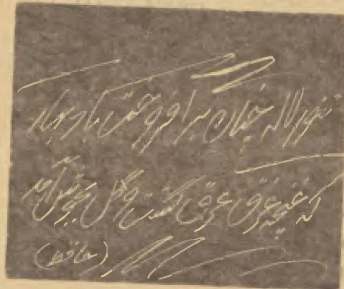 تنور لاله چنان برافروخت باد بهار
که غنچه غرق عرق گشت و گل بجوش آمد
(حافظ)